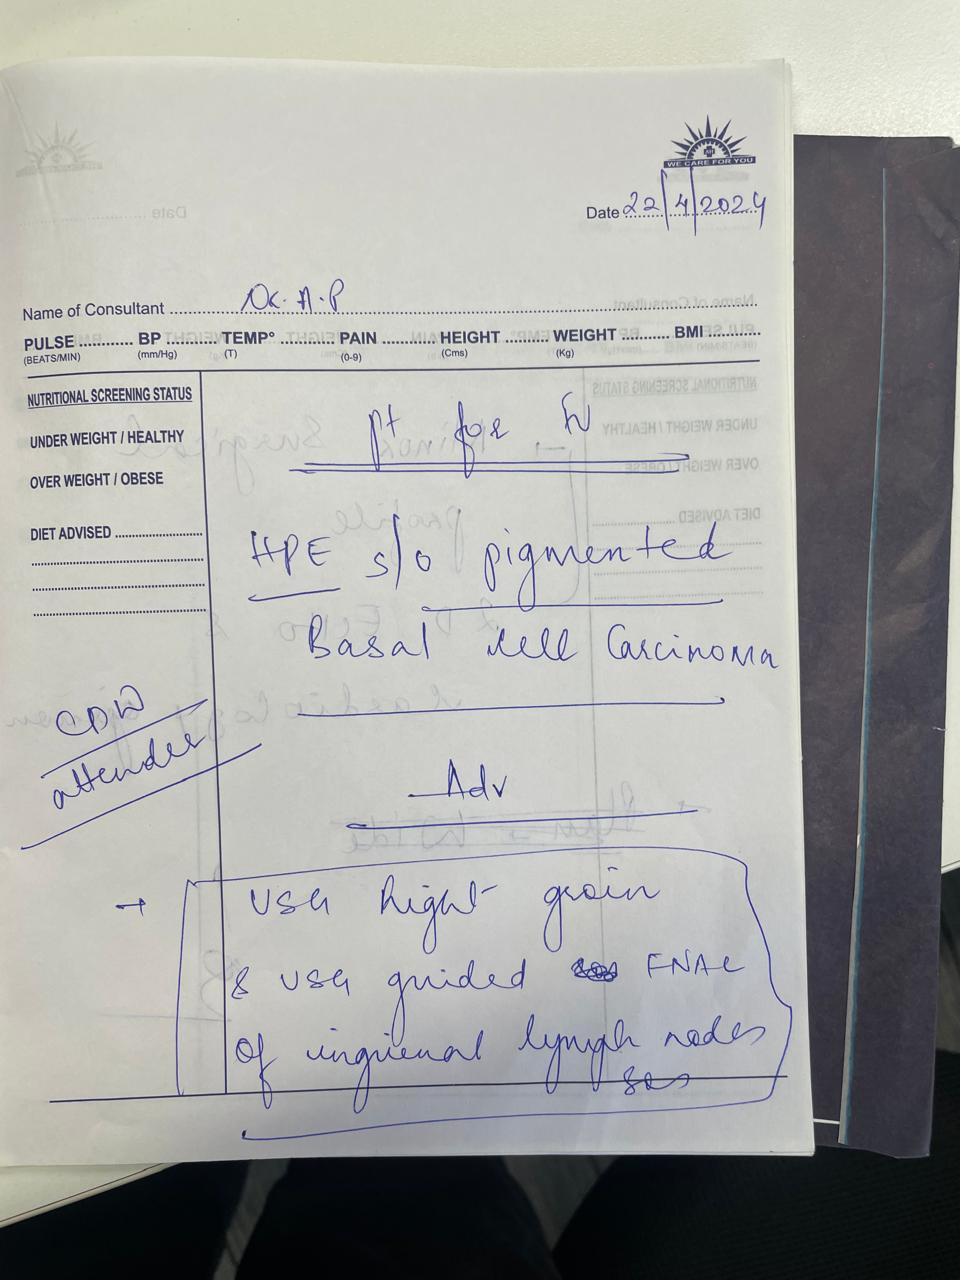 WE CARE FOR YOU
Date 22/4/2024
Name of Consultant Dr. A.P
PULSE BP TEMP° PAIN HEIGHT WEIGHT BMI
(BEATS/MIN) (mm/Hg) (T) (0-9) (Cms) (Kg)
NUTRITIONAL SCREENING STATUS
UNDER WEIGHT / HEALTHY
OVER WEIGHT / OBESE
DIET ADVISED
Pt for
HPE s/o pigmented
Basal cell Carcinoma
CDW
attender
Adv
→ USG Right groin
& USG guided FNAC
of inguienal lymph nodes